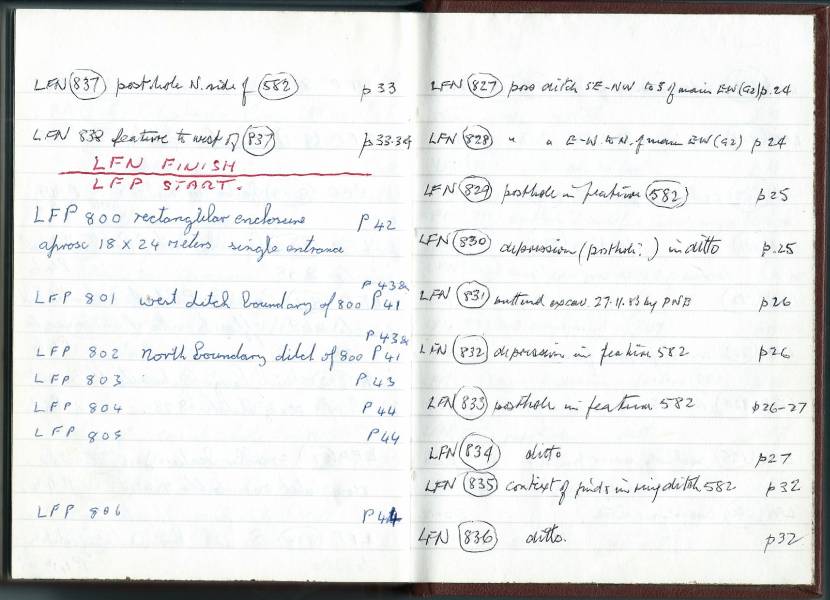 LFN 837 posthole N. side of 582 p 33
LFN 838 feature to west of 837 p33-34
LFN FINISH
LFP START.
LFP 800 rectanglular enclosure P 42
aprose 18 x 24 meters single entrance
P 43 &
LFP 801 west ditch boundary of 800 P 41
P 43 &
LFP 802 north boundary ditch of 800 P 41
LFP 803 P 43
LFP 804 P44
LFP 805 P44
LFP 806 P44
LFN 827 poss ditch SE-NW to S of main EW (G2) p.24
LFN 828 " " E-W. to N. of main EW (G2) p 24
LFN 829 posthole in feature 582 p25
LFN 830 depression (posthole?) in ditto p.25
LFN 831 excav. 27.11.83 by PNB p26
LFN 832 depression in feature 582 p26
LFN 833 posthole in feature 582 p26-27
LFN 834 ditto p27
LFN 835 context of finds in ring ditch 582 p32
LFN 836 ditto. p32